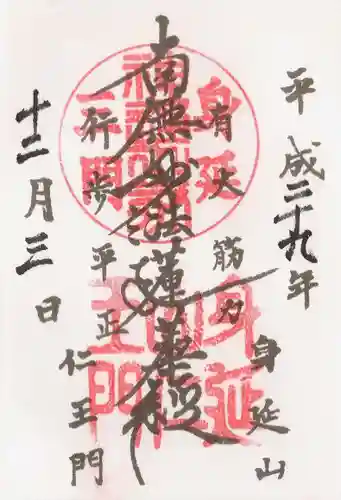 平成二十九年
身延山
有大筋力
南無妙法蓮華経
行歩平正
仁王門
十二月三日
身延
身延